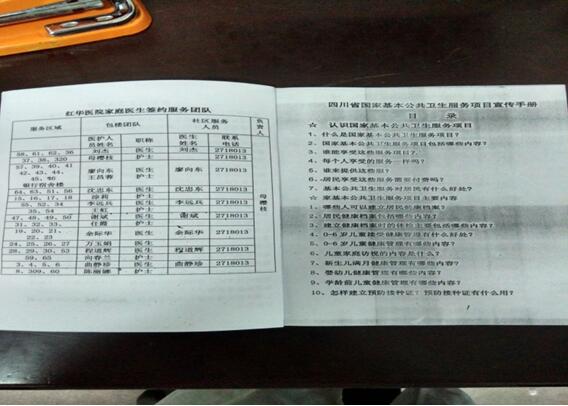 红华医院家庭医生签约服务团队
服务区域 包楼团队 社区服务人员 负责人
医护人员姓名 职称 医生姓名 联系电话
58, 61, 62, 36 刘杰 医生 刘杰 2718013
37, 38, 320 母樱枝 护士
57, 39, 40, 41 廖向东 医生 廖向东 2718013
42, 43, 44, 王昌蓉 护士
45, 46
银行宿舍楼
64, 63, 51, 56 沈忠东 医生 沈忠东 2718013
15, 16, 17, 18 护士
55, 52, 34 李远兵 医生 李远兵 2718013
35, 54 王虹 护士
47, 48, 49, 50 谢斌 医生 谢斌 2718013
31, 32, 33, 任霞 护士
19, 20, 21, 余际华 医生 余际华 2718013
22, 23
24, 25, 26, 27 万玉娟 医生
28, 29, 30, 53 程道辉 医生 程道辉 2718013
59, 65 向春兰 护士
3, 4, 5, 6 曲静珍 医生 曲静珍 2718013
8, 309, 60 陈丽娜 护士
母樱枝
四川省国家基本公共卫生服务项目宣传手册
目 录
☆ 认识国家基本公共卫生服务项目
1、什么是国家基本公共卫生服务项目?
2、国家基本公共卫生服务项目包括哪些内容?
3、谁能享受这些服务?
4、每个人享受的服务一样吗?
5、谁来提供这些服务?
6、居民享受这些服务需要付费吗?
7、基本公共卫生服务对居民有什么好处?
☆ 国家基本公共卫生服务项目主要内容
1、哪些人可以建立居民健康档案?
2、居民健康档案包括哪些内容?
3、建立健康档案时的体检主要包括哪些内容?
4、0-6岁儿童接受健康管理有什么好处?
5、0-6岁儿童健康管理有哪些内容?
6、儿童家庭访视的内容是什么?
7、新生儿满月健康管理有哪些内容?
8、婴幼儿健康管理有哪些内容?
9、学龄前儿童健康管理有哪些内容?
10、怎样建立预防接种证?预防接种证有什么用?
1